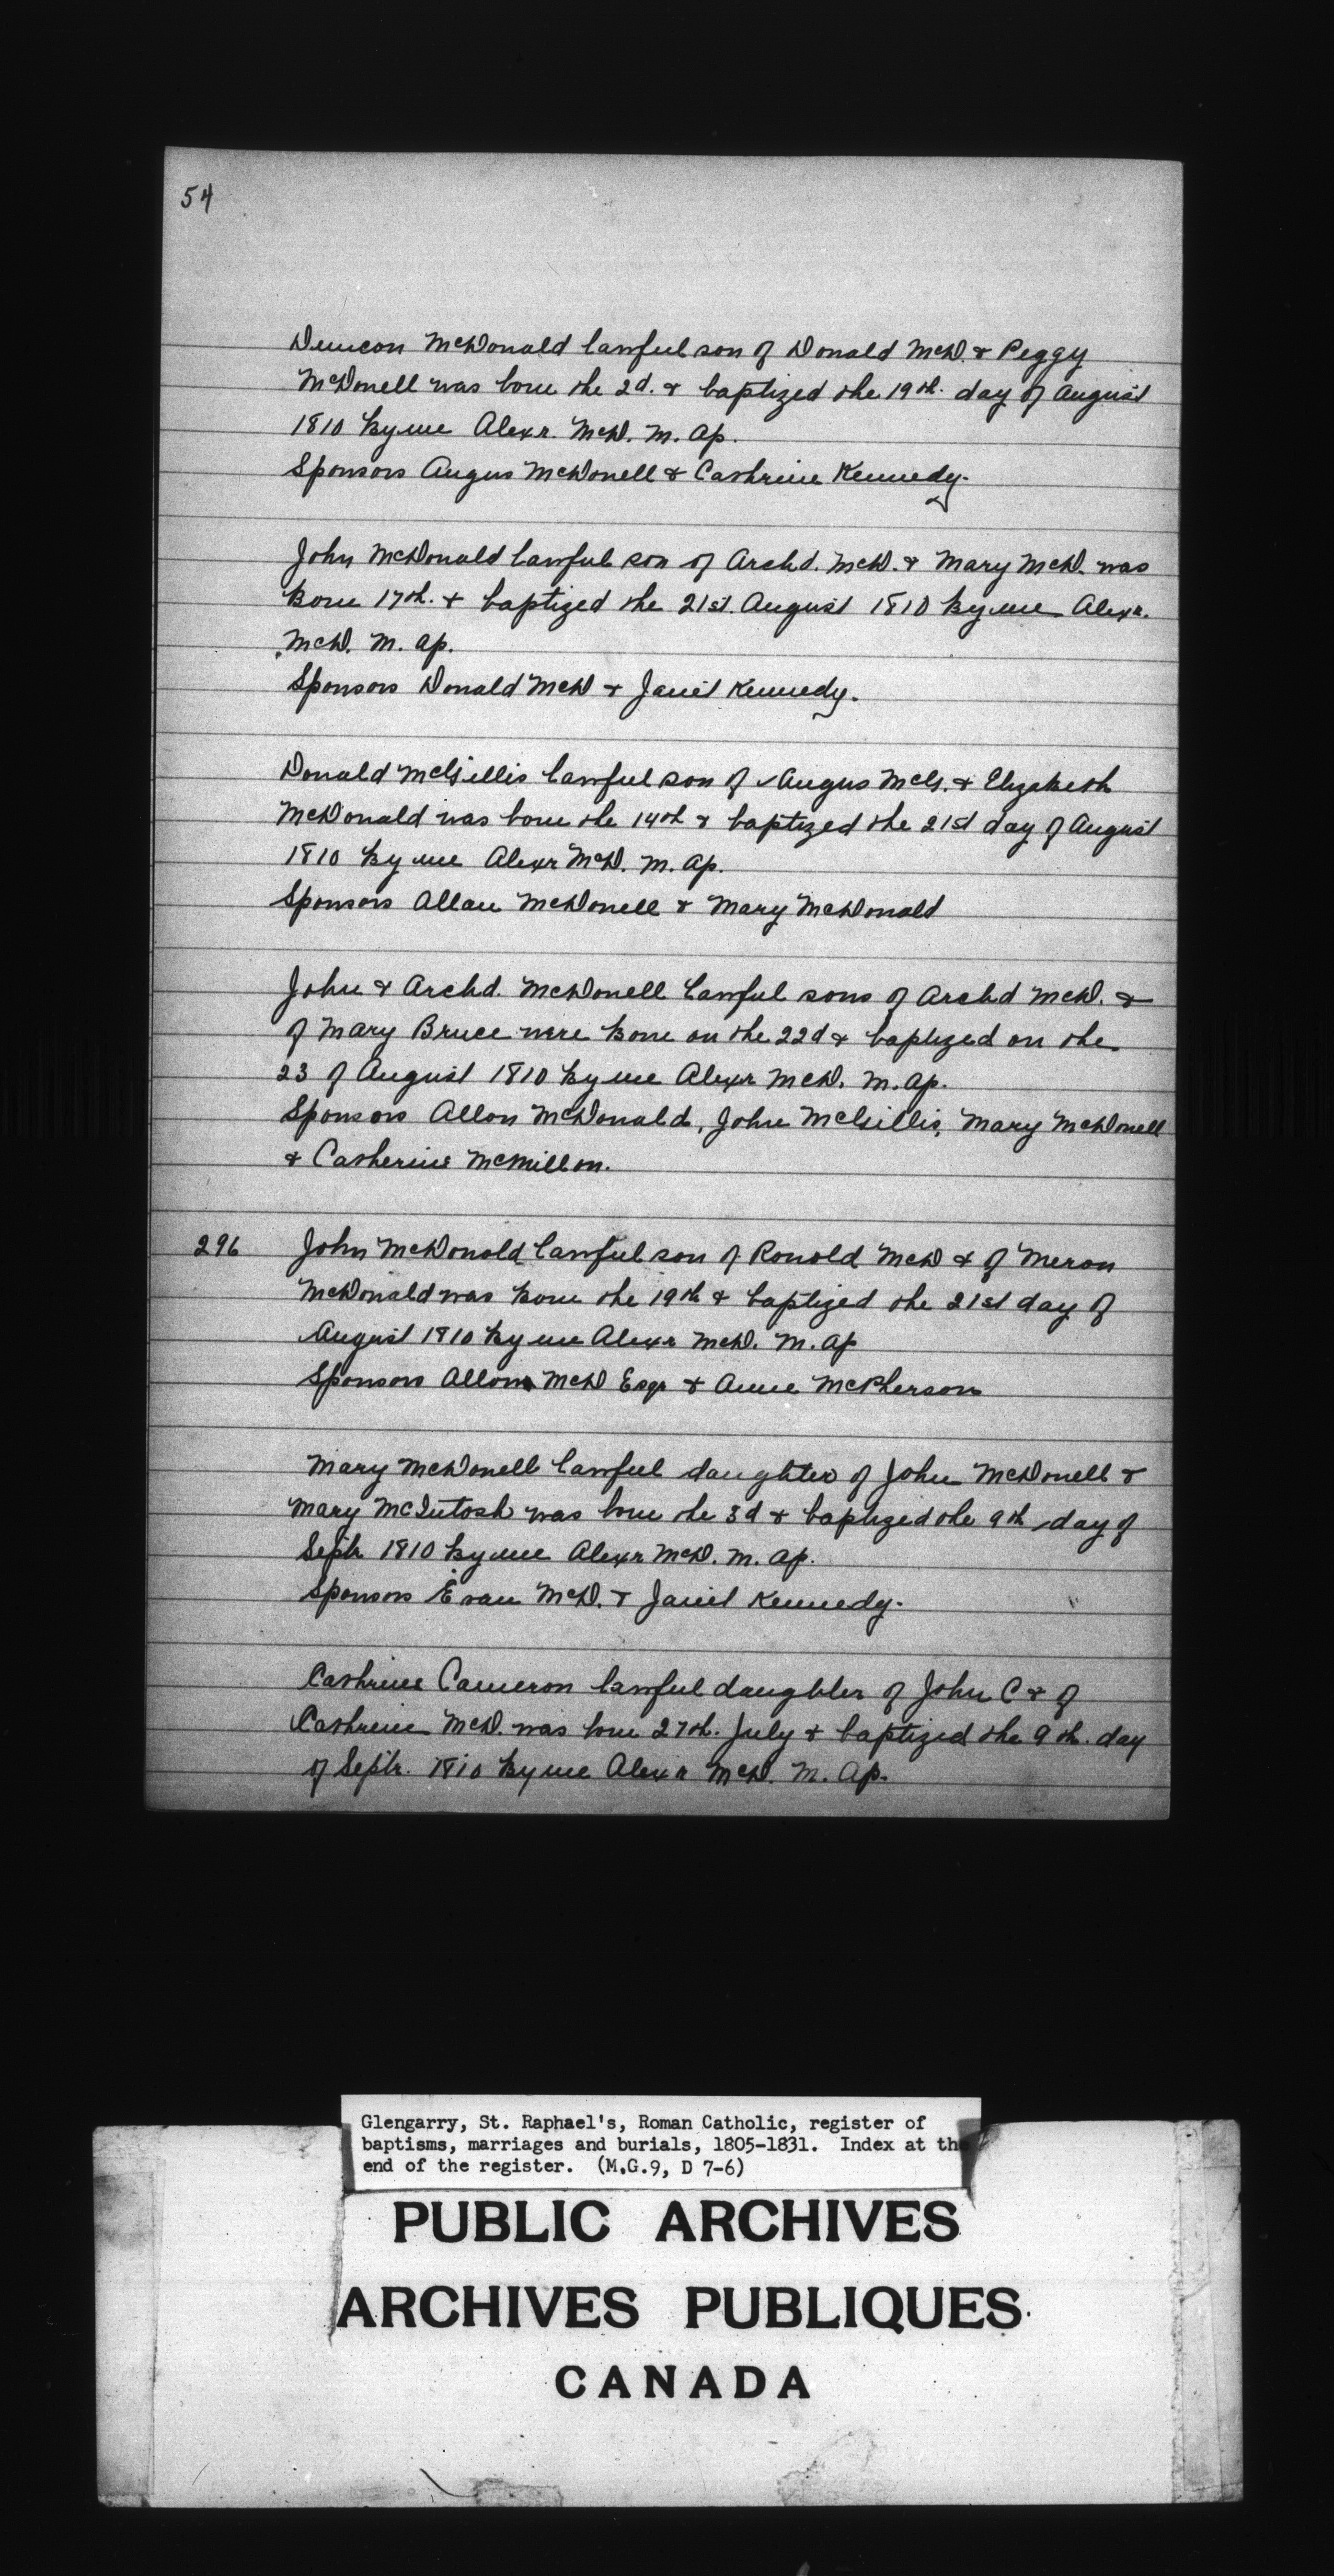 54
Duncan McDonald lawful son of Donald McD. & Peggy
McDonell was born the 2d. & baptized the 19th. day of August
1810 by me Alexr. McD. M. Ap.
Sponsors Angus McDonell & Cathrine Kennedy.
John McDonald lawful son of Archd. McD. & Mary McD. was
born 17th. & baptized the 21st. August 1810 by me Alexr.
McD. M. Ap.
Sponsors Donald McD & Janet Kennedy.
Donald McGillis lawful son of Angus McG. & Elizabeth
McDonald was born the 14th & baptized the 21st day of August
1810 by me Alexr McD. M. Ap.
Sponsors Allan McDonell & Mary McDonald
John & Archd. McDonell lawful sons of Archd McD. &
of Mary Bruce were born on the 22d & baptized on the
23 of August 1810 by me Alexr McD. M. Ap.
Sponsors Allan McDonald, John McGillis, Mary McDonell
& Catherine McMillan.
296 John McDonald lawful son of Ronald McD & of Meron
McDonald was born the 19th & baptized the 21st day of
August 1810 by me Alexr McD. M. Ap
Sponsors Allan McD Esqr & Anne McPherson
Mary McDonell lawful daughter of John McDonell &
Mary McIntosh was born the 3d & baptized the 9th day of
Septr 1810 by me Alexr McD. M. Ap.
Sponsors Evan McD. & Janet Kennedy.
Cathrine Cameron lawful daughter of John C & of
Cathrine McD. was born 27th. July & baptized the 9th. day
of Septr. 1810 by me Alexr McD. M. Ap.
Glengarry, St. Raphael's, Roman Catholic, register of
baptisms, marriages and burials, 1805-1831. Index at the
end of the register. (M.G.9, D 7-6)
PUBLIC ARCHIVES
ARCHIVES PUBLIQUES
CANADA